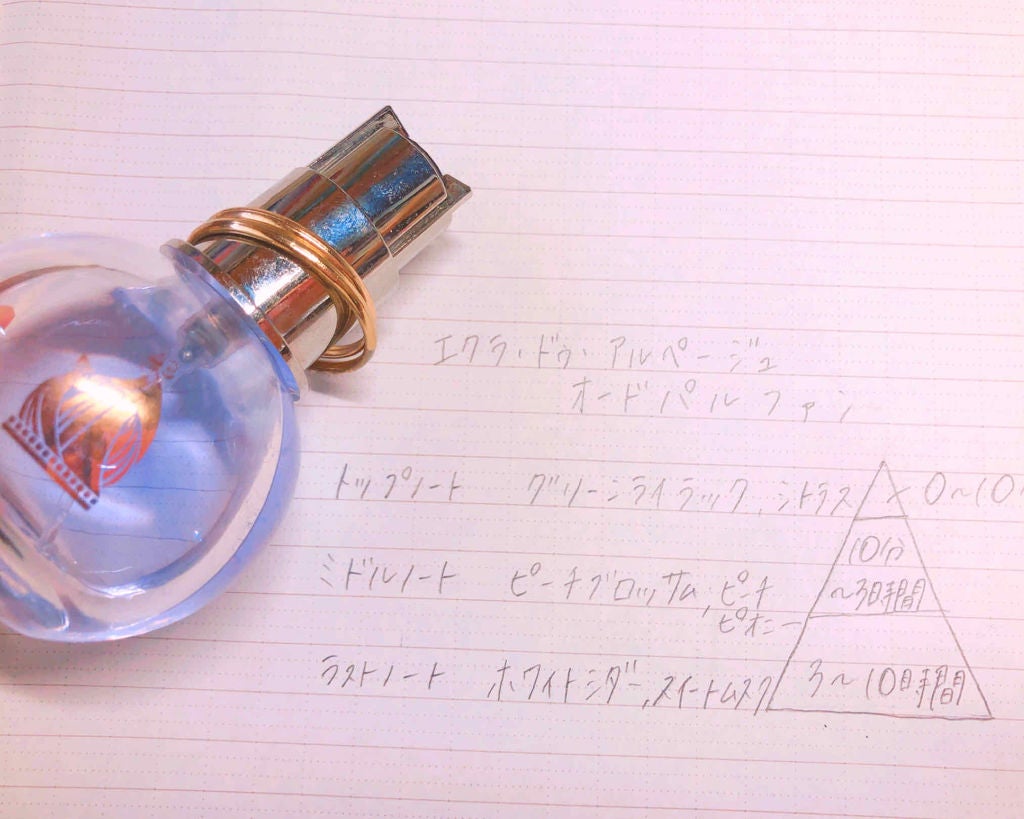 エクラ・ドゥ・アルページュ
オードパルファン
トップノート グリーンライラック,シトラス 0~10
ミドルノート ピーチブロッサム,ピーチ
ピオニー
10分
~3時間
ラストノート ホワイトシダー,スイートムスク 3~10時間